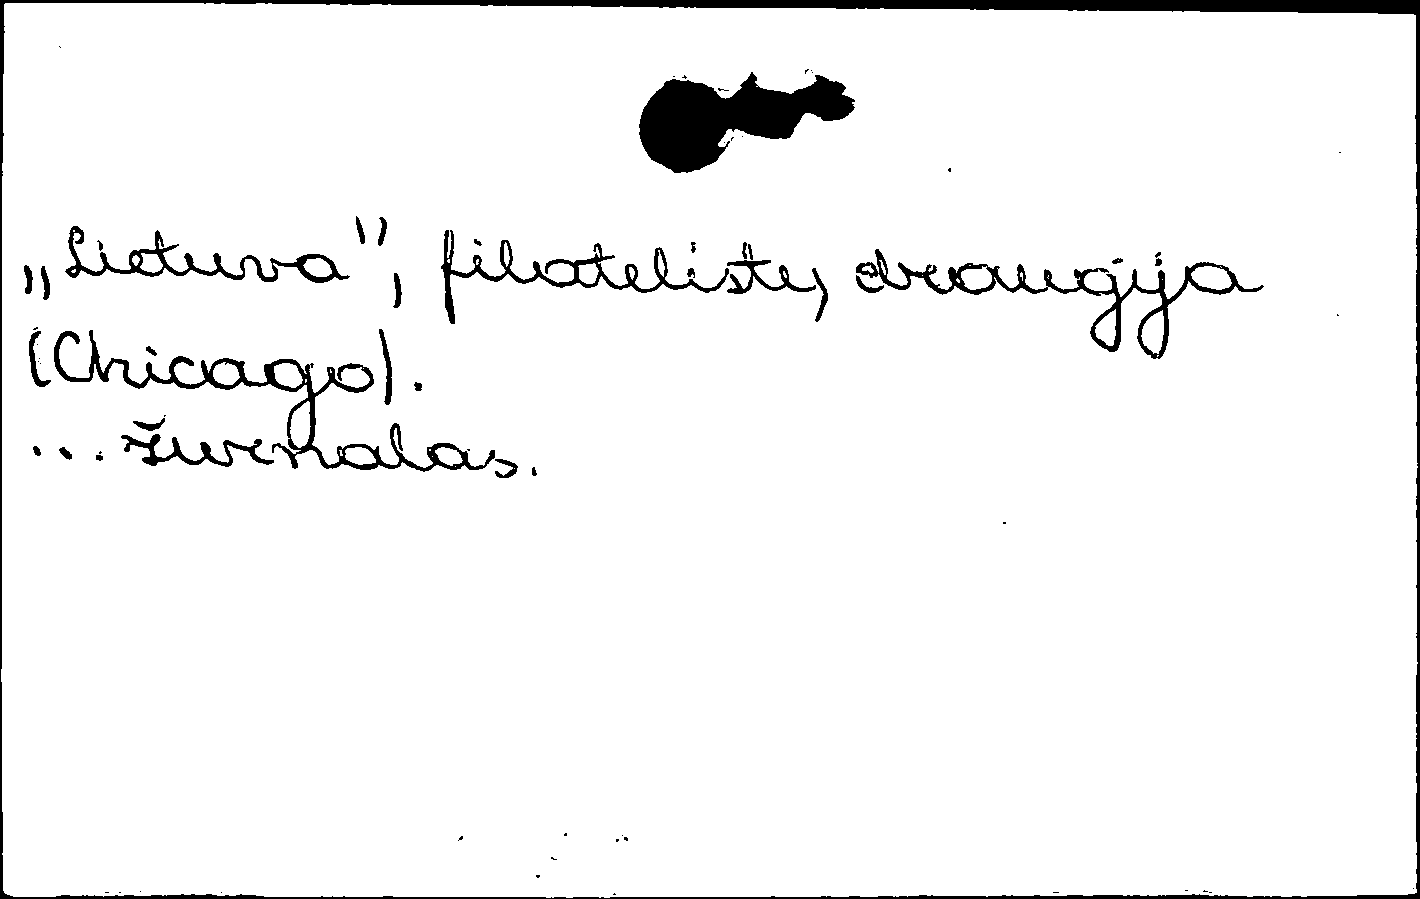 „Lietuva", filatelistų draugija
(Chicago).
... žurnalas.